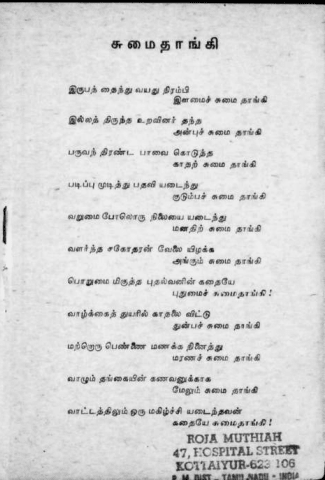 சுமைதாங்கி
இருபத் தைந்து வயது நிரம்பி
இளமைச் சுமை தாங்கி
இல்லத் திருந்த உறவினர் தந்த
அன்புச் சுமை தாங்கி
பருவந் திரண்ட பாவை கொடுத்த
காதற் சுமை தாங்கி
படிப்பு முடித்து பதவி யடைந்து
குடும்பச் சுமை தாங்கி
வறுமை போலொரு நிலையை யடைந்து
மனதிற் சுமை தாங்கி
வளர்ந்த சகோதரன் வேலை யிழக்க
அங்கும் சுமை தாங்கி
பொறுமை மிகுந்த புதல்வனின் கதையே
புதுமைச் சுமைதாங்கி!
வாழ்க்கைத் துயரில் காதலை விட்டு
துன்பச் சுமை தாங்கி
மற்றொரு பெண்ணை மணக்க நினைத்து
மரணச் சுமை தாங்கி
வாழும் தங்கையின் கணவனுக்காக
மேலும் சுமை தாங்கி
வாட்டத்திலும் ஒரு மகிழ்ச்சி யடைந்தவன்
கதையே சுமைதாங்கி!
ROJA MUTHIAH
47, HOSPITAL STREET
KOTTAIYUR-623 106
P. M. DIST - TAMIL NADU - INDIA